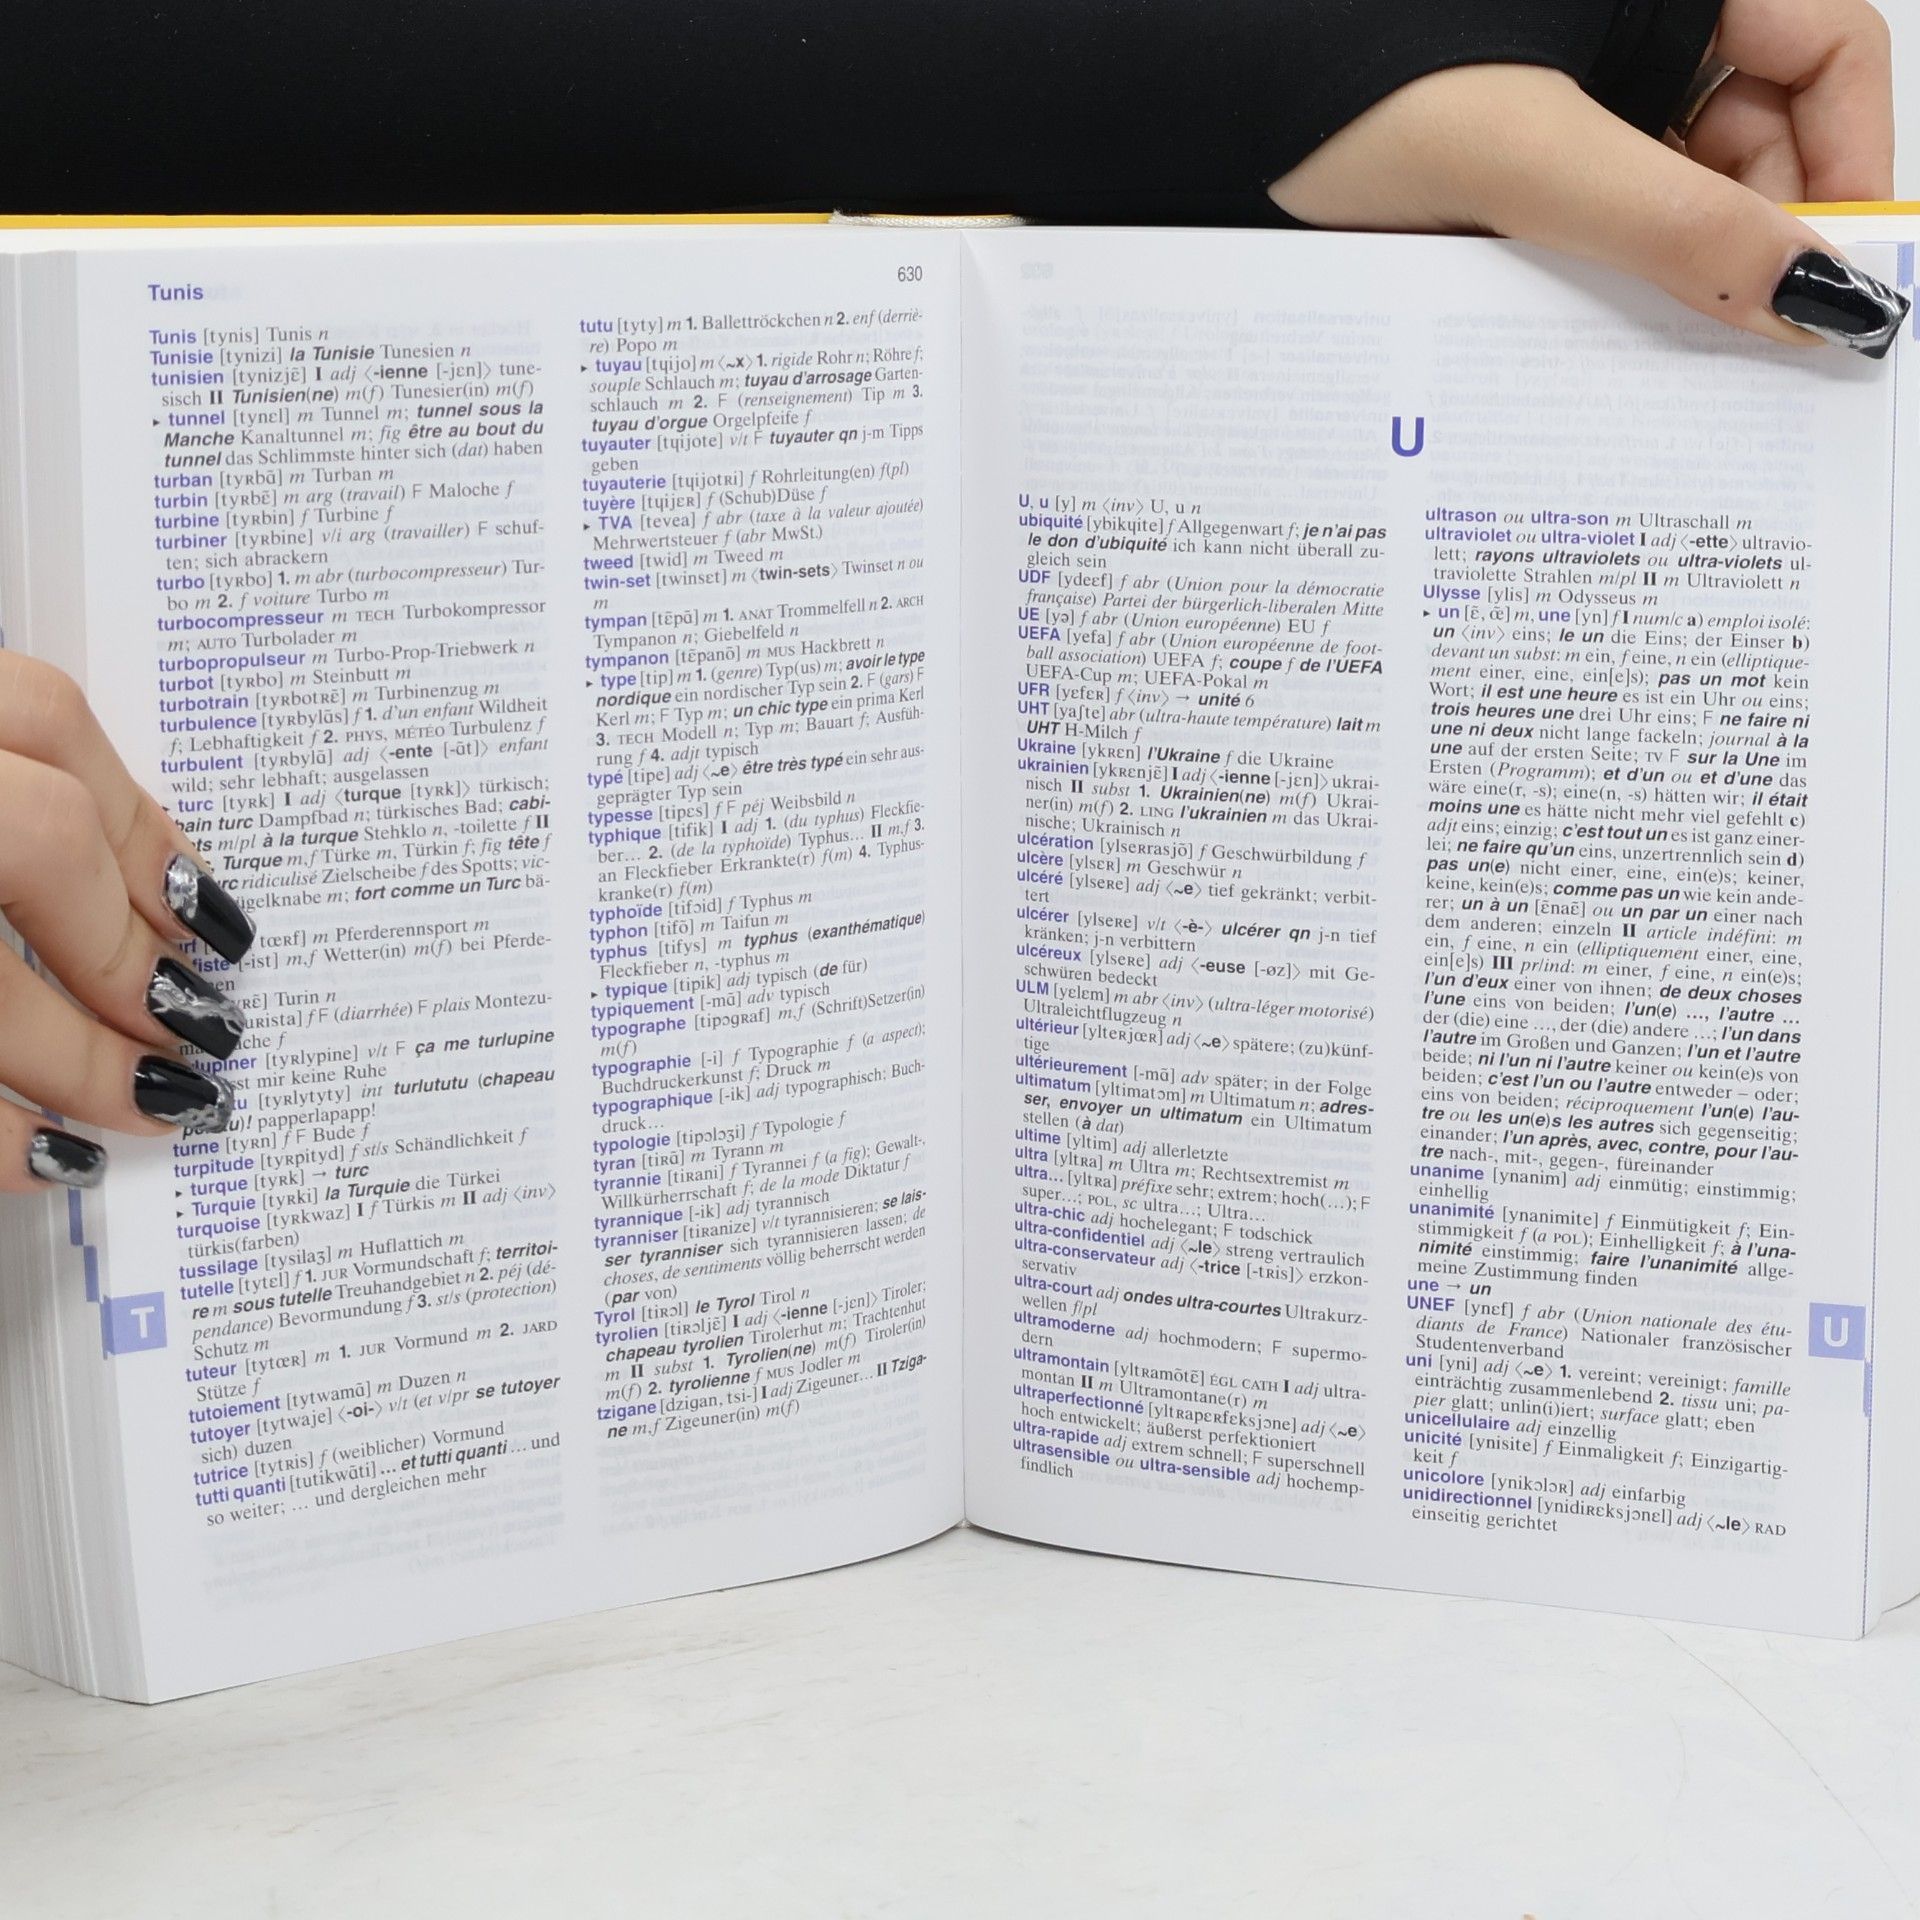 Tunis
630
Tunis [tynis] Tunis n
Tunisie [tynizi] la Tunisie Tunesien n
tunisien [tynizjɛ̃] I adj ⟨-ienne [-jɛn]⟩ tune-
sisch II Tunisien(ne) m(f) Tunesier(in) m(f)
▸ tunnel [tynɛl] m Tunnel m; tunnel sous la
Manche Kanaltunnel m; fig être au bout du
tunnel das Schlimmste hinter sich (dat) haben
turban [tyʀbɑ̃] m Turban m
turbin [tyʀbɛ̃] m arg (travail) F Maloche f
turbine [tyʀbin] f Turbine f
turbiner [tyʀbine] v/i arg (travailler) F schuf-
ten; sich abrackern
turbo [tyʀbo] 1. m abr (turbocompresseur) Tur-
bo m 2. f voiture Turbo m
turbocompresseur m TECH Turbokompressor
m; AUTO Turbolader m
turbopropulseur m Turbo-Prop-Triebwerk n
turbot [tyʀbo] m Steinbutt m
turbotrain [tyʀbotʀɛ̃] m Turbinenzug m
turbulence [tyʀbylɑ̃s] f 1. d'un enfant Wildheit
f; Lebhaftigkeit f 2. PHYS, MÉTÉO Turbulenz f
turbulent [tyʀbylɑ̃] adj ⟨-ente [-ɑ̃t]⟩ enfant
wild; sehr lebhaft; ausgelassen
▸ turc [tyʀk] I adj ⟨turque [tyʀk]⟩ türkisch;
bain turc Dampfbad n; türkisches Bad; cabi-
m/pl à la turque Stehklo n, -toilette f II
Turque m,f Türke m, Türkin f; fig tête f
ridiculisé Zielscheibe f des Spotts; vic-
m; fort comme un Turc bä-
tœʀf] m Pferderennsport m
[-ist] m,f Wetter(in) m(f) bei Pferde-
Turin n
f F (diarrhée) F plais Montezu-
f
[tyʀlypine] v/t F ça me turlupine
mir keine Ruhe
[tyʀlytyty] int turlututu (chapeau
papperlapapp!
turne [tyʀn] f F Bude f
turpitude [tyʀpityd] f st/s Schändlichkeit f
▸ turque [tyʀk] → turc
▸ Turquie [tyʀki] la Turquie die Türkei
turquoise [tyʀkwaz] I f Türkis m II adj ⟨inv⟩
türkis(farben)
tussilage [tysilaʒ] m Huflattich m
tutelle [tytɛl] f 1. JUR Vormundschaft f; territoi-
re m sous tutelle Treuhandgebiet n 2. péj (dé-
pendance) Bevormundung f 3. st/s (protection)
Schutz m
tuteur [tytœʀ] m 1. JUR Vormund m 2. JARD
Stütze f
tutoiement [tytwamɑ̃] m Duzen n
tutoyer [tytwaje] ⟨-oi-⟩ v/t (et v/pr se tutoyer
sich) duzen
tutrice [tytʀis] f (weiblicher) Vormund
tutti quanti [tutikwɑ̃ti] ... et tutti quanti ... und
so weiter; ... und dergleichen mehr
tutu [tyty] m 1. Ballettröckchen n 2. enf (derriè-
re) Popo m
▸ tuyau [tɥijo] m ⟨~x⟩ 1. rigide Rohr n; Röhre f;
souple Schlauch m; tuyau d'arrosage Garten-
schlauch m 2. F (renseignement) Tip m 3.
tuyau d'orgue Orgelpfeife f
tuyauter [tɥijote] v/t F tuyauter qn j-m Tipps
geben
tuyauterie [tɥijotʀi] f Rohrleitung(en) f(pl)
tuyère [tɥijɛʀ] f (Schub)Düse f
▸ TVA [tevea] f abr (taxe à la valeur ajoutée)
Mehrwertsteuer f (abr MwSt.)
tweed [twid] m Tweed m
twin-set [twinsɛt] m ⟨twin-sets⟩ Twinset n ou
m
tympan [tɛ̃pɑ̃] m 1. ANAT Trommelfell n 2. ARCH
Tympanon n; Giebelfeld n
tympanon [tɛ̃panɔ̃] m MUS Hackbrett n
▸ type [tip] m 1. (genre) Typ(us) m; avoir le type
nordique ein nordischer Typ sein 2. F (gars) F
Kerl m; F Typ m; un chic type ein prima Kerl
3. TECH Modell n; Typ m; Bauart f; Ausfüh-
rung f 4. adjt typisch
typé [tipe] adj ⟨~e⟩ être très typé ein sehr aus-
geprägter Typ sein
typesse [tipɛs] f F péj Weibsbild n
typhique [tifik] I adj 1. (du typhus) Fleckfie-
ber... 2. (de la typhoïde) Typhus... II m,f 3.
an Fleckfieber Erkrankte(r) f(m) 4. Typhus-
kranke(r) f(m)
typhoïde [tifɔid] f Typhus m
typhon [tifɔ̃] m Taifun m
typhus [tifys] m typhus (exanthématique)
Fleckfieber n, -typhus m
▸ typique [tipik] adj typisch (de für)
typiquement [-mɑ̃] adv typisch
typographe [tipɔgʀaf] m,f (Schrift)Setzer(in)
m(f)
typographie [-i] f Typographie f (a aspect);
Buchdruckerkunst f; Druck m
typographique [-ik] adj typographisch; Buch-
druck...
typologie [tipɔlɔʒi] f Typologie f
tyran [tiʀɑ̃] m Tyrann m
tyrannie [tiʀani] f Tyrannei f (a fig); Gewalt-,
Willkürherrschaft f; de la mode Diktatur f
tyrannique [-ik] adj tyrannisch
tyranniser [tiʀanize] v/t tyrannisieren; se lais-
ser tyranniser sich tyrannisieren lassen; de
choses, de sentiments völlig beherrscht werden
(par von)
Tyrol [tiʀɔl] le Tyrol Tirol n
tyrolien [tiʀɔljɛ̃] I adj ⟨-ienne [-jɛn]⟩ Tiroler;
chapeau tyrolien Tirolerhut m; Trachtenhut
m II subst 1. Tyrolien(ne) m(f) Tiroler(in)
m(f) 2. tyrolienne f MUS Jodler m
tzigane [dzigan, tsi-] I adj Zigeuner... II Tziga-
ne m,f Zigeuner(in) m(f)
T
U
U, u [y] m ⟨inv⟩ U, u n
ubiquité [ybikɥite] f Allgegenwart f; je n'ai pas
le don d'ubiquité ich kann nicht überall zu-
gleich sein
UDF [ydeɛf] f abr (Union pour la démocratie
française) Partei der bürgerlich-liberalen Mitte
UE [yə] f abr (Union européenne) EU f
UEFA [yefa] f abr (Union européenne de foot-
ball association) UEFA f; coupe f de l'UEFA
UEFA-Cup m; UEFA-Pokal m
UFR [yɛfɛʀ] f ⟨inv⟩ → unité 6
UHT [yaʃte] abr (ultra-haute température) lait m
UHT H-Milch f
Ukraine [ykʀɛn] l'Ukraine f die Ukraine
ukrainien [ykʀɛnjɛ̃] I adj ⟨-ienne [-jɛn]⟩ ukrai-
nisch II subst 1. Ukrainien(ne) m(f) Ukrai-
ner(in) m(f) 2. LING l'ukrainien m das Ukrai-
nische; Ukrainisch n
ulcération [ylseʀasjɔ̃] f Geschwürbildung f
ulcère [ylsɛʀ] m Geschwür n
ulcéré [ylseʀe] adj ⟨~e⟩ tief gekränkt; verbit-
tert
ulcérer [ylseʀe] v/t ⟨-è-⟩ ulcérer qn j-n tief
kränken; j-n verbittern
ulcéreux [ylseʀø] adj ⟨-euse [-øz]⟩ mit Ge-
schwüren bedeckt
ULM [yɛlɛm] m abr ⟨inv⟩ (ultra-léger motorisé)
Ultraleichtflugzeug n
ultérieur [ylteʀjœʀ] adj ⟨~e⟩ spätere; (zu)künf-
tige
ultérieurement [-mɑ̃] adv später; in der Folge
ultimatum [yltimatɔm] m Ultimatum n; adres-
ser, envoyer un ultimatum ein Ultimatum
stellen (à dat)
ultime [yltim] adj allerletzte
ultra [yltʀa] m Ultra m; Rechtsextremist m
ultra... [yltʀa] préfixe sehr; extrem; hoch(...); F
super...; POL, sc ultra...; Ultra...
ultra-chic adj hochelegant; F todschick
ultra-confidentiel adj ⟨~le⟩ streng vertraulich
ultra-conservateur adj ⟨-trice [-tʀis]⟩ erzkon-
servativ
ultra-court adj ondes ultra-courtes Ultrakurz-
wellen f/pl
ultramoderne adj hochmodern; F supermo-
dern
ultramontain [yltʀamɔ̃tɛ̃] ÉGL CATH I adj ultra-
montan II m Ultramontane(r) m
ultraperfectionné [yltʀapɛʀfɛksjɔne] adj ⟨~e⟩
hoch entwickelt; äußerst perfektioniert
ultra-rapide adj extrem schnell; F superschnell
ultrasensible ou ultra-sensible adj hochemp-
findlich
ultrason ou ultra-son m Ultraschall m
ultraviolet ou ultra-violet I adj ⟨-ette⟩ ultravio-
lett; rayons ultraviolets ou ultra-violets ul-
traviolette Strahlen m/pl II m Ultraviolett n
Ulysse [ylis] m Odysseus m
▸ un [ɛ̃, œ̃] m, une [yn] f I num/c a) emploi isolé:
un ⟨inv⟩ eins; le un die Eins; der Einser b)
devant un subst: m ein, f eine, n ein (elliptique-
ment einer, eine, ein[e]s); pas un mot kein
Wort; il est une heure es ist ein Uhr ou eins;
trois heures une drei Uhr eins; F ne faire ni
une ni deux nicht lange fackeln; journal à la
une auf der ersten Seite; TV F sur la Une im
Ersten (Programm); et d'un ou et d'une das
wäre eine(r, -s); eine(n, -s) hätten wir; il était
moins une es hätte nicht mehr viel gefehlt c)
adjt eins; einzig; c'est tout un es ist ganz einer-
lei; ne faire qu'un eins, unzertrennlich sein d)
pas un(e) nicht einer, eine, ein(e)s; keiner,
keine, kein(e)s; comme pas un wie kein ande-
rer; un à un [ɛ̃naɛ̃] ou un par un einer nach
dem anderen; einzeln II article indéfini: m
ein, f eine, n ein (elliptiquement einer, eine,
ein[e]s) III pr/ind: m einer, f eine, n ein(e)s;
l'un d'eux einer von ihnen; de deux choses
l'une eins von beiden; l'un(e) ..., l'autre ...
der (die) eine ..., der (die) andere ...; l'un dans
l'autre im Großen und Ganzen; l'un et l'autre
beide; ni l'un ni l'autre keiner ou kein(e)s von
beiden; c'est l'un ou l'autre entweder – oder;
eins von beiden; réciproquement l'un(e) l'au-
tre ou les un(e)s les autres sich gegenseitig;
einander; l'un après, avec, contre, pour l'au-
tre nach-, mit-, gegen-, füreinander
unanime [ynanim] adj einmütig; einstimmig;
einhellig
unanimité [ynanimite] f Einmütigkeit f; Ein-
stimmigkeit f (a POL); Einhelligkeit f; à l'una-
nimité einstimmig; faire l'unanimité allge-
meine Zustimmung finden
une → un
UNEF [ynɛf] f abr (Union nationale des étu-
diants de France) Nationaler französischer
Studentenverband
uni [yni] adj ⟨~e⟩ 1. vereint; vereinigt; famille
einträchtig zusammenlebend 2. tissu uni; pa-
pier glatt; unlin(i)iert; surface glatt; eben
unicellulaire adj einzellig
unicité [ynisite] f Einmaligkeit f; Einzigartig-
keit f
unicolore [ynikɔlɔʀ] adj einfarbig
unidirectionnel [ynidiʀɛksjɔnɛl] adj ⟨~le⟩ RAD
einseitig gerichtet
U